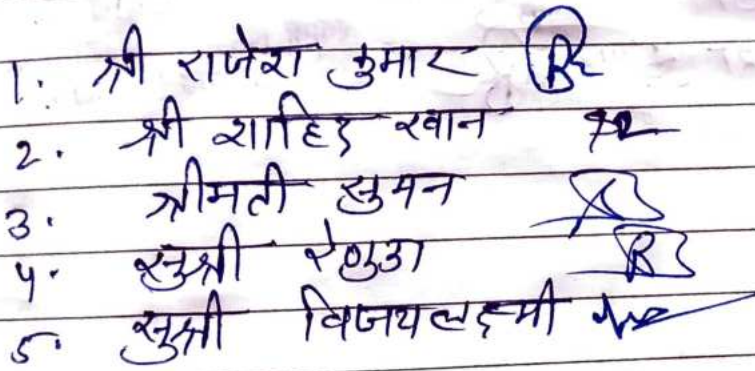 1. श्री राजेश कुमार
2. श्री शाहिद खान
3. श्रीमती सुमन
4. सुश्री
5. सुश्री विजयलक्ष्मी